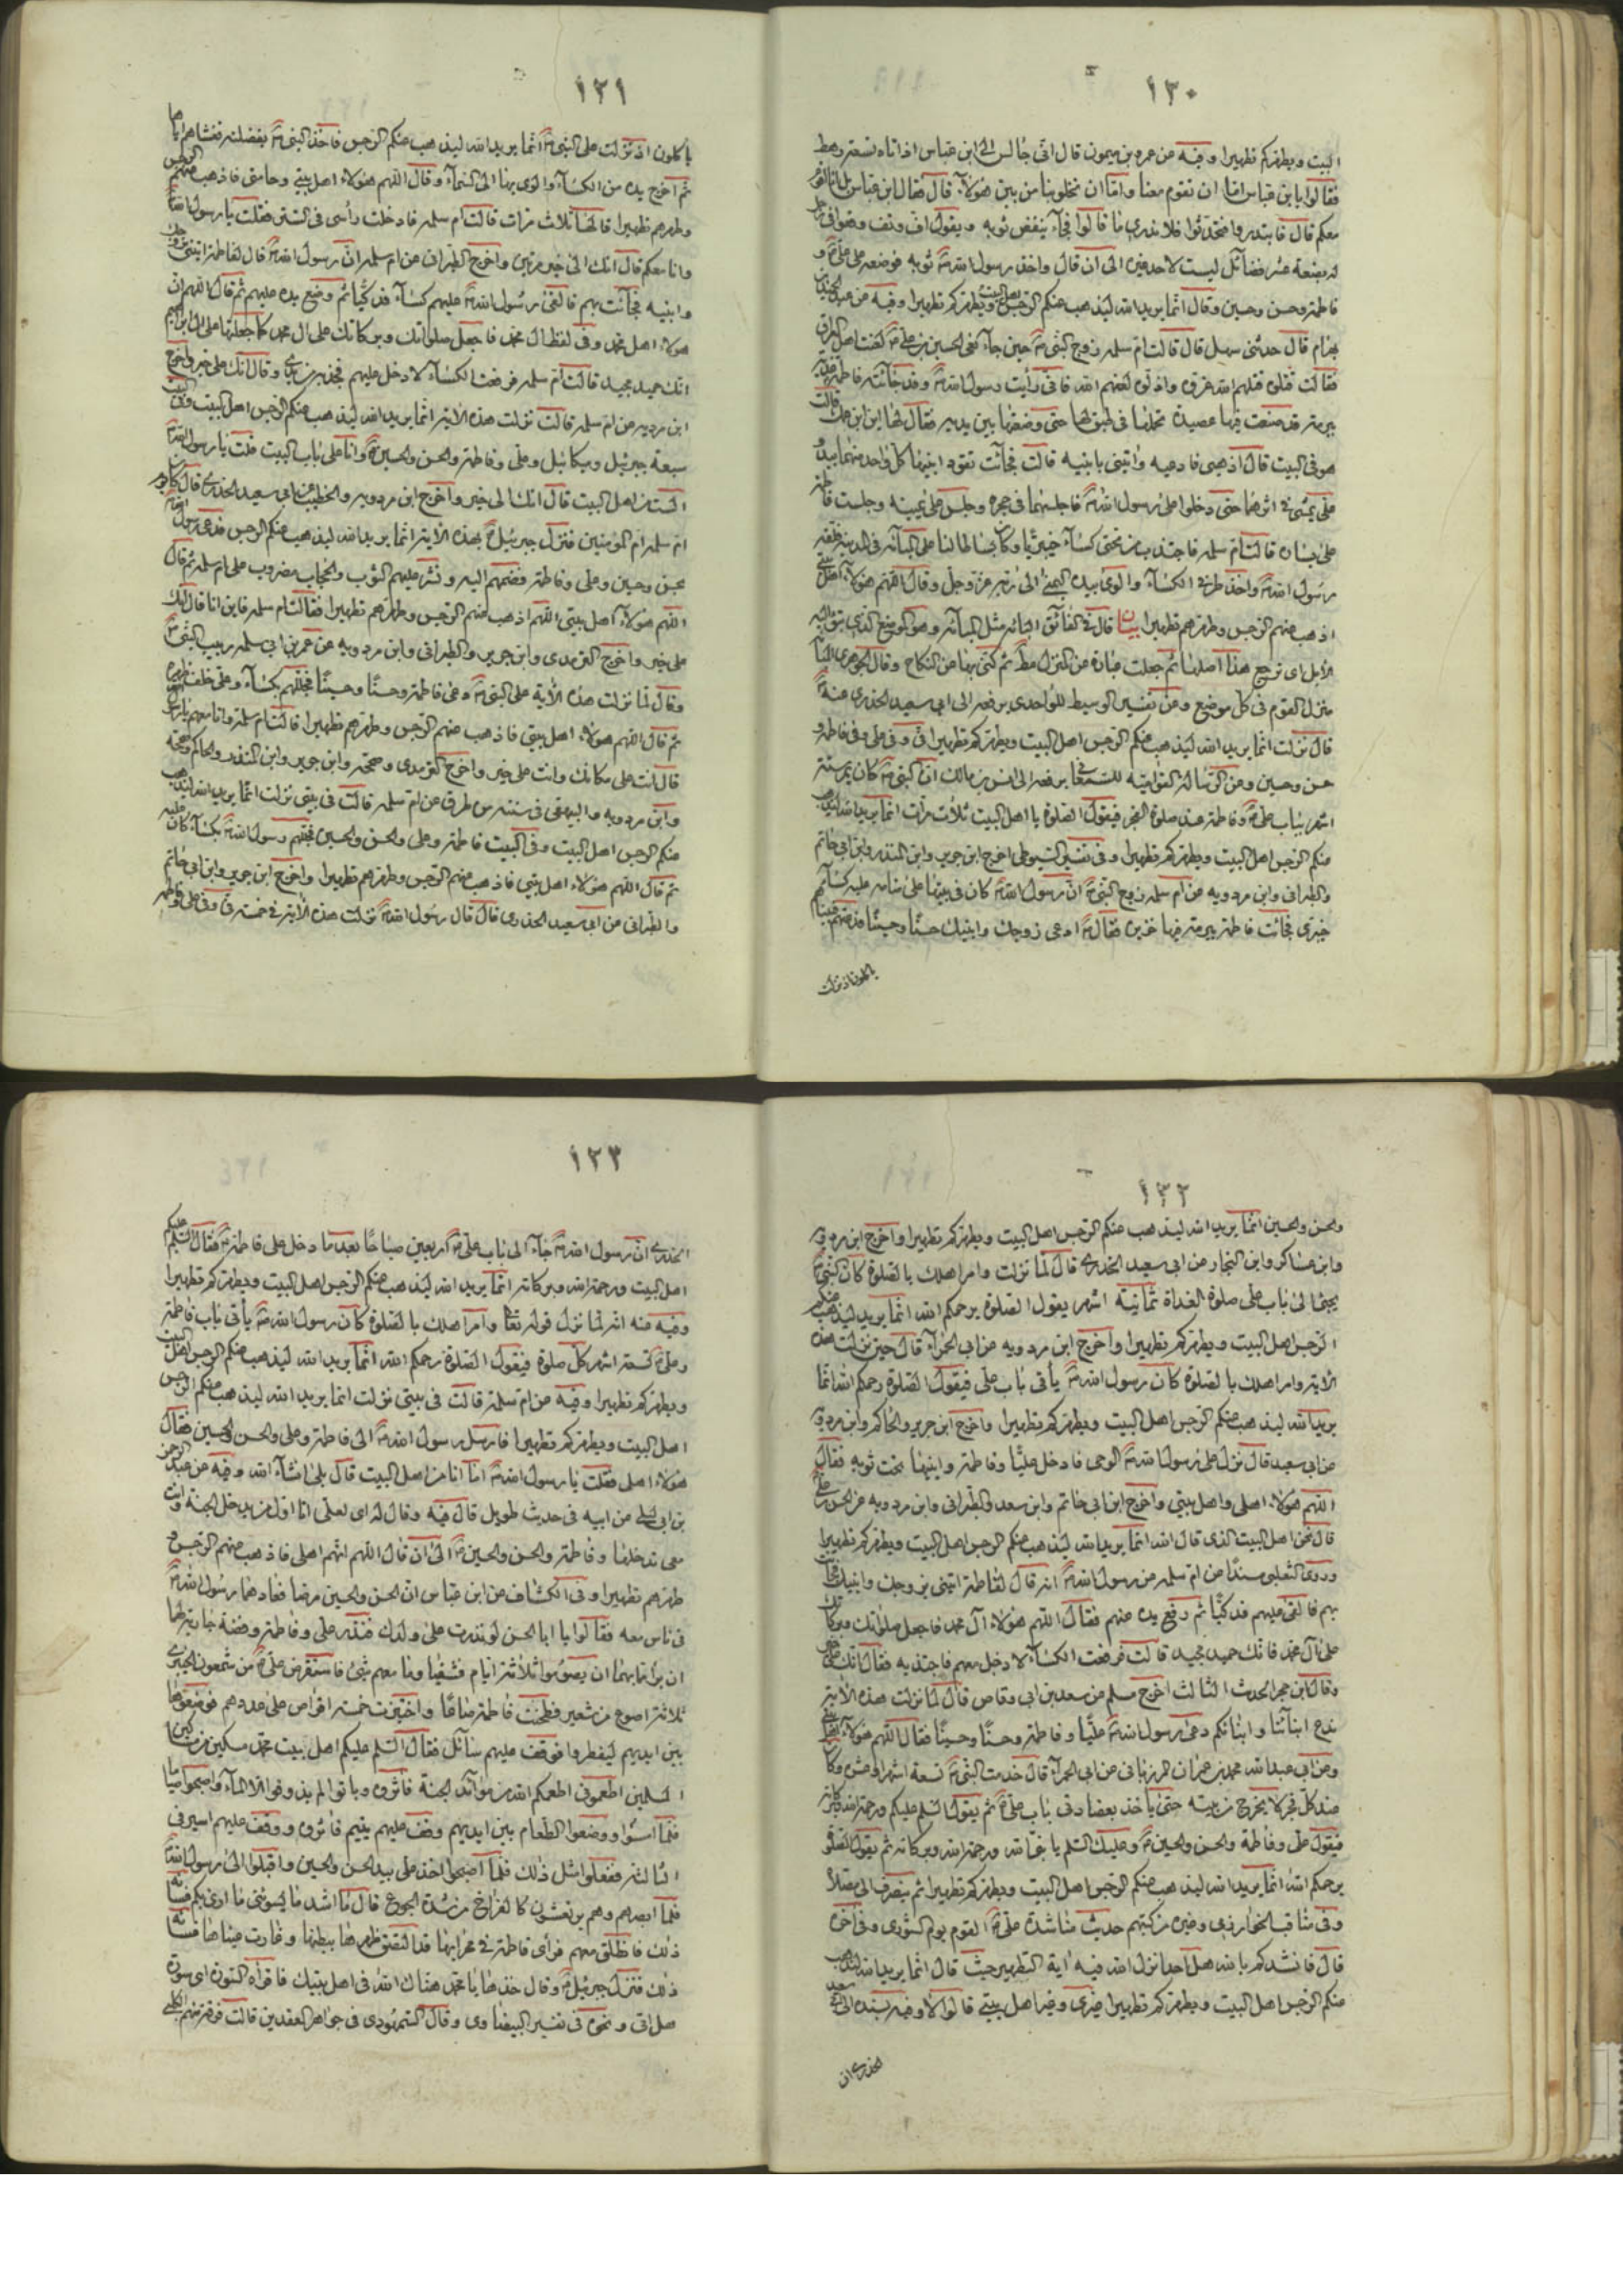 ١٣٠
البيت ويطهركم تطهيرا وفيه عن عمرو بن ميمون قال انى جالس الى ابن عباس اذ اتاه تسعة رهط
فقالوا يا بن عباس اما ان تقوم معنا واما ان تخلو بنا من بين هؤلاء قال فقال ابن عباس بل انا اقوم
معكم قال فابتدروا فتحدثوا فلا ندرى ما قالوا فجاء ينفض ثوبه ويقول اف وتف وقعوا فى رجل
له بضعة عشر فضائل ليست لاحد غيره الى ان قال واخذ رسول الله ثوبه فوضعه على على و
فاطمة وحسن وحسين وقال انما يريد الله ليذهب عنكم الرجس اهل البيت ويطهركم تطهيرا وفيه عن عبد الحميد بن
بهرام قال حدثنى سهل قال قالت ام سلمة زوج النبى حين جاء نعى الحسين بن على لعنت اهل العراق
فقالت قتلوه قتلهم الله غروه واذلوه لعنهم الله فانى رأيت رسول الله وقد جائته فاطمة غدية
ببرمة قد صنعت فيها عصيدة تحملها فى طبق لها حتى وضعتها بين يديه فقال لها اين ابن عمك قالت
هو فى البيت قال اذهبى فادعيه وائتنى بابنيه قالت فجائت تقود ابنيها كل واحد منهما بيد و
على يمشى فى اثرهما حتى دخلوا على رسول الله فاجلسهما فى حجره وجلس على يمينه وجلست فاطمة
على يساره قالت ام سلمة فاجتذب من تحتى كساء خيبريا وكان بساطا لنا على المنامة فى المدينة فلفه
رسول الله واخذ طرفى الكساء والوى بيده اليمنى الى ربه عز وجل وقال اللهم هؤلاء اهل بيتى
اذهب عنهم الرجس وطهرهم تطهيرا بيان قال فى الفائق
الابل اى ترجع هذا اصلها ثم جعلت عبارة عن المنزل مط ثم كنى بها عن النكاح وقال الجوهرى
منزل القوم فى كل موضع ومن تفسير الوسيط للواحدى يرفعه الى ابى سعيد الخدرى
قال نزلت انما يريد الله ليذهب عنكم الرجس اهل البيت ويطهركم تطهيرا فى وفى على وفى فاطمة و
حسن وحسين ومن الرسالة القوامية للسمعانى يرفعه الى انس بن مالك ان النبى كان يمر ستة
اشهر بباب على وفاطمة عند صلوة الفجر فيقول الصلوة يا اهل البيت ثلاث مرات انما يريد الله ليذهب
عنكم الرجس اهل البيت ويطهركم تطهيرا وفى تفسير السيوطى اخرج ابن جرير وابن المنذر وابن ابى حاتم
والطبرانى وابن مردويه عن ام سلمة زوج النبى ان رسول الله كان فى بيتها على منامة عليه كساء
خيبرى فجائت فاطمة ببرمة فيها خزيرة فقال ادعى زوجك وابنيك حسنا وحسينا فدعتهم فبينا هم
ياكلون اذ نزلت
١٣١
ياكلون اذ نزلت على النبى انما يريد الله ليذهب عنكم الرجس فاخذ النبى بفضلة فغشاهم اياها
ثم اخرج يده من الكساء والوى بها الى السماء وقال اللهم هؤلاء اهل بيتى وحامتى فاذهب عنهم الرجس
وطهرهم تطهيرا قالها ثلاث مرات قالت ام سلمة فادخلت رأسى فى الستر فقلت يا رسول الله
وانا معكم قال انك الى خير مرتين واخرج الطبرانى عن ام سلمة ان رسول الله قال لفاطمة ايتينى بزوجك
وابنيه فجائت بهم فالقى رسول الله عليهم كساء فدكيا ثم وضع يده عليهم ثم قال اللهم ان
هؤلاء اهل محمد وفى لفظ ال محمد فاجعل صلواتك وبركاتك على ال محمد كما جعلتها على ال ابراهيم
انك حميد مجيد قالت ام سلمة فرفعت الكساء لادخل عليهم فجذبه من يدى وقال انك على خير واخرج
ابن مردويه عن ام سلمة قالت نزلت هذه الاية انما يريد الله ليذهب عنكم الرجس اهل البيت وفى البيت
سبعة جبرئيل وميكائيل وعلى وفاطمة والحسن والحسين وانا على باب البيت قلت يا رسول الله
الست من اهل البيت قال انك الى خير واخرج ابن مردويه والخطيب عن ابى سعيد الخدرى قال كان يوم
ام سلمة ام المؤمنين فنزل جبرئيل بهذه الاية انما يريد الله ليذهب عنكم الرجس فدعى رسول الله
بحسن وحسين وعلى وفاطمة فضمهم اليه ونشر عليهم الثوب والحجاب مضروب على ام سلمة ثم قال
اللهم هؤلاء اهل بيتى اللهم اذهب عنهم الرجس وطهرهم تطهيرا فقالت ام سلمة فاين انا قال انك
على خير واخرج الترمذى وابن جرير والطبرانى وابن مردويه عن عمر بن ابى سلمة ربيب النبى
وقال لما نزلت هذه الاية على النبى دعى فاطمة وحسنا وحسينا فجللهم بكساء وعلى خلف ظهره
ثم قال اللهم هؤلاء اهل بيتى فاذهب عنهم الرجس وطهرهم تطهيرا قالت ام سلمة وانا معهم يا رسول الله
قال انت على مكانك وانت على خير واخرج الترمذى وصححه وابن جرير وابن المنذر والحاكم وصححه
وابن مردويه والبيهقى فى سننه من طرق عن ام سلمة قالت فى بيتى نزلت انما يريد الله ليذهب
عنكم الرجس اهل البيت وفى البيت فاطمة وعلى والحسن والحسين فجللهم رسول الله بكساء كان عليه
ثم قال اللهم هؤلاء اهل بيتى فاذهب عنهم الرجس وطهرهم تطهيرا واخرج ابن جرير وابن ابى حاتم
والطبرانى عن ابى سعيد الخدرى قال قال رسول الله نزلت هذه الاية فى خمسة فى وفى على وفاطمة
١٣٢
والحسن والحسين انما يريد الله ليذهب عنكم الرجس اهل البيت ويطهركم تطهيرا واخرج ابن مردويه
وابن عساكر وابن النجار عن ابى سعيد الخدرى قال لما نزلت وامر اهلك بالصلوة كان النبى
يجئ الى باب على صلوة الغداة ثمانية اشهر يقول الصلوة يرحمكم الله انما يريد الله ليذهب عنكم
الرجس اهل البيت ويطهركم تطهيرا واخرج ابن مردويه عن ابى الحمراء قال حين نزلت هذه
الاية وامر اهلك بالصلوة كان رسول الله يأتى باب على فيقول الصلوة رحمكم الله انما
يريد الله ليذهب عنكم الرجس اهل البيت ويطهركم تطهيرا واخرج ابن جرير والحاكم وابن مردويه
عن ابى سعيد قال نزل على رسول الله الوحى فادخل عليا وفاطمة وابنيها تحت ثوبه فقال
اللهم هؤلاء اهلى واهل بيتى واخرج ابن ابى حاتم وابن سعد والطبرانى وابن مردويه عن الحسن بن على
قال نحن اهل البيت الذى قال الله انما يريد الله ليذهب عنكم الرجس اهل البيت ويطهركم تطهيرا
وروى الثعلبى مسندا عن ام سلمة عن رسول الله انه قال لفاطمة ايتينى بزوجك وابنيك فجائت
بهم فالقى عليهم فدكيا ثم رفع يده عنهم فقال اللهم هؤلاء آل محمد فاجعل صلواتك وبركاتك
على آل محمد فانك حميد مجيد قالت فرفعت الكساء لادخل معهم فاجتذبه فقال انك على خير
وقال ابن حجر الحديث الثالث اخرج مسلم عن سعد بن ابى وقاص قال لما نزلت هذه الاية
ندع ابنائنا وابنائكم دعى رسول الله عليا وفاطمة وحسنا وحسينا فقال اللهم هؤلاء اهلى
وعن ابى عبد الله محمد بن عمران المرزبانى عن ابى الحمراء قال خدمت النبى تسعة اشهر او عشرة وكان
عند كل فجر لا يخرج من بيته حتى يأخذ بعضادتى باب على ثم يقول السلم عليكم ورحمة الله وبركاته
فيقول على وفاطمة والحسن والحسين وعليك السلم يا نبى الله ورحمة الله وبركاته ثم يقول الصلوة
يرحمكم الله انما يريد الله ليذهب عنكم الرجس اهل البيت ويطهركم تطهيرا ثم ينصرف الى مصلاه
وفى مناقب الخوارزمى وغيره من كتبهم حديث مناشدة على القوم يوم الشورى وفى آخره
قال فانشدكم بالله هل احد انزل الله فيه آية التطهير حيث قال انما يريد الله ليذهب
عنكم الرجس اهل البيت ويطهركم تطهيرا غيرى وغير اهل بيتى قالوا لا وفيه بسنده الى ابى سعيد
الخدرى ان
١٣٣
الخدرى ان رسول الله جاء الى باب على اربعين صباحا بعد ما دخل على فاطمة فقال السلم عليكم
اهل البيت ورحمة الله وبركاته انما يريد الله ليذهب عنكم الرجس اهل البيت ويطهركم تطهيرا
وفيه عنه انه لما نزل قوله تعا وامر اهلك بالصلوة كان رسول الله يأتى باب فاطمة
وعلى تسعة اشهر كل صلوة فيقول الصلوة رحمكم الله انما يريد الله ليذهب عنكم الرجس اهل البيت
ويطهركم تطهيرا وفيه عن ام سلمة قالت فى بيتى نزلت انما يريد الله ليذهب عنكم الرجس
اهل البيت ويطهركم تطهيرا فارسل رسول الله الى فاطمة وعلى والحسن والحسين فقال
هؤلاء اهلى فقلت يا رسول الله اما انا من اهل البيت قال بلى انشاء الله وفيه عن عبد الرحمن
بن ابى ليلى عن ابيه فى حديث طويل قال فيه وقال له اى لعلى انا اول من يدخل الجنة وانت
معى تدخلها وفاطمة والحسن والحسين الى ان قال اللهم انهم اهلى فاذهب عنهم الرجس و
طهرهم تطهيرا وفى الكشاف عن ابن عباس ان الحسن والحسين مرضا فعادهما رسول الله
فى ناس معه فقالوا يا ابا الحسن لو نذرت على ولدك فنذر على وفاطمة وفضة جارية لهما
ان برأتا بهما ان يصوموا ثلاثة ايام فشفيا وما معهم شئ فاستقرض على من شمعون الخيبرى
ثلاثة اصوع من شعير فطحنت فاطمة صاعا واختبزت خمسة اقراص على عددهم فوضعوها
بين ايديهم ليفطروا فوقف عليهم سائل فقال السلم عليكم اهل بيت محمد مسكين من مساكين
المسلمين اطعمونى اطعمكم الله من موائد الجنة فاثروه وباتوا لم يذوقوا الا الماء واصبحوا صياما
فلما امسوا ووضعوا الطعام بين ايديهم وقف عليهم يتيم فاثروه ووقف عليهم اسير فى
الثالثة ففعلوا مثل ذلك فلما اصبحوا اخذ على بيد الحسن والحسين واقبلوا الى رسول الله
فلما ابصرهم وهم يرتعشون كالفراخ من شدة الجوع قال ما اشد ما يسوئنى ما ارى بكم
ذلك فانطلق معهم فرأى فاطمة فى محرابها قد التصق ظهرها ببطنها وغارت عيناها فسائه
ذلك فنزل جبرئيل وقال خذها يا محمد هناك الله فى اهل بيتك فاقرأه السورة اى سورة
هل اتى ونحوه فى تفسير البيضاوى وقال السمهودى فى جواهر العقدين قالت فرقة منهم الكلبى